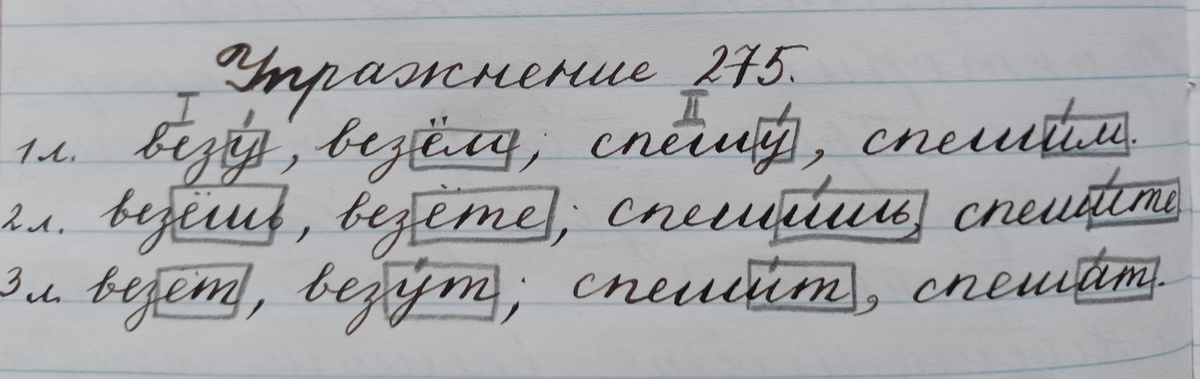 Упражнение 275.
I II
1 л. везу́, везём; спешу́, спеши́м.
2 л. везёшь, везёте; спеши́шь, спеши́те
3 л. везёт, везу́т; спеши́т, спеша́т.